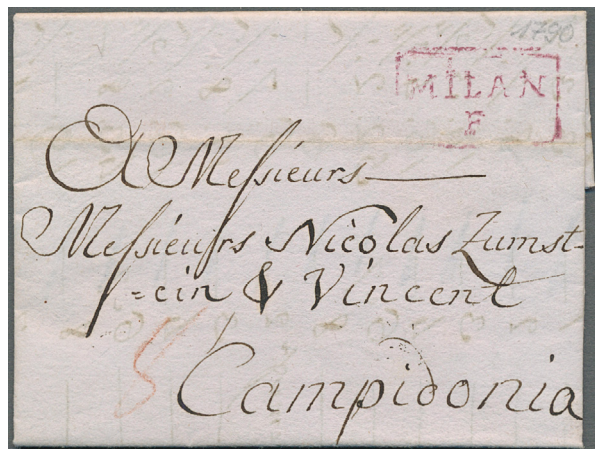 1790.
MILAN
F
A Meſsieurs
Meſsieurs Nicolas Zumst-
=ein & Vincent
Campidonia